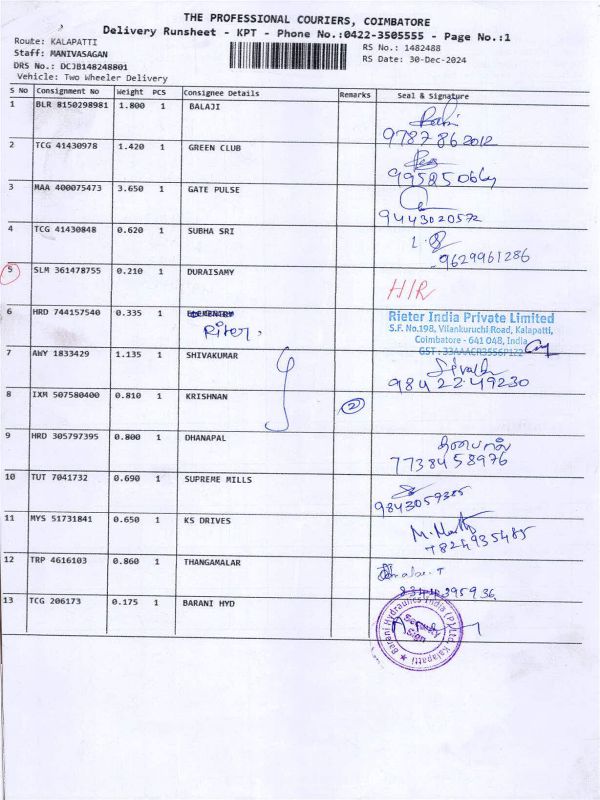 THE PROFESSIONAL COURIERS, COIMBATORE
Delivery Runsheet - KPT - Phone No.:0422-3505555 - Page No.:1
Route: KALAPATTI
RS No.: 1482488
Staff: MANIVASAGAN
RS Date: 30-Dec-2024
DRS No.: DCJB148248801
Vehicle: Two Wheeler Delivery
S No Consignment No Weight PCS Consignee Details Remarks Seal & Signature
1 BLR 8150298981 1.800 1 BALAJI
9787862012
2 TCG 41430978 1.420 1 GREEN CLUB
3 MAA 400075473 3.650 1 GATE PULSE
9443020572
4 TCG 41430848 0.620 1 SUBHA SRI
9629961286
5 SLM 361478755 0.210 1 DURAISAMY
H/R
6 HRD 744157540 0.335 1
Riter,
Rieter India Private Limited
S.F. No.198, Vilankuruchi Road, Kalapatti,
Coimbatore - 641 048, India
7 AWY 1833429 1.135 1 SHIVAKUMAR
9842249230
8 IXM 507580400 0.810 1 KRISHNAN 2
9 HRD 305797395 0.800 1 DHANAPAL
தனபால்
7738458976
10 TUT 7041732 0.690 1 SUPREME MILLS
11 MYS 51731841 0.650 1 KS DRIVES
7824935485
12 TRP 4616103 0.860 1 THANGAMALAR
13 TCG 206173 0.175 1 BARANI HYD
Barani Hydraulics India (P) Ltd. Kalapatti
Security
Sign